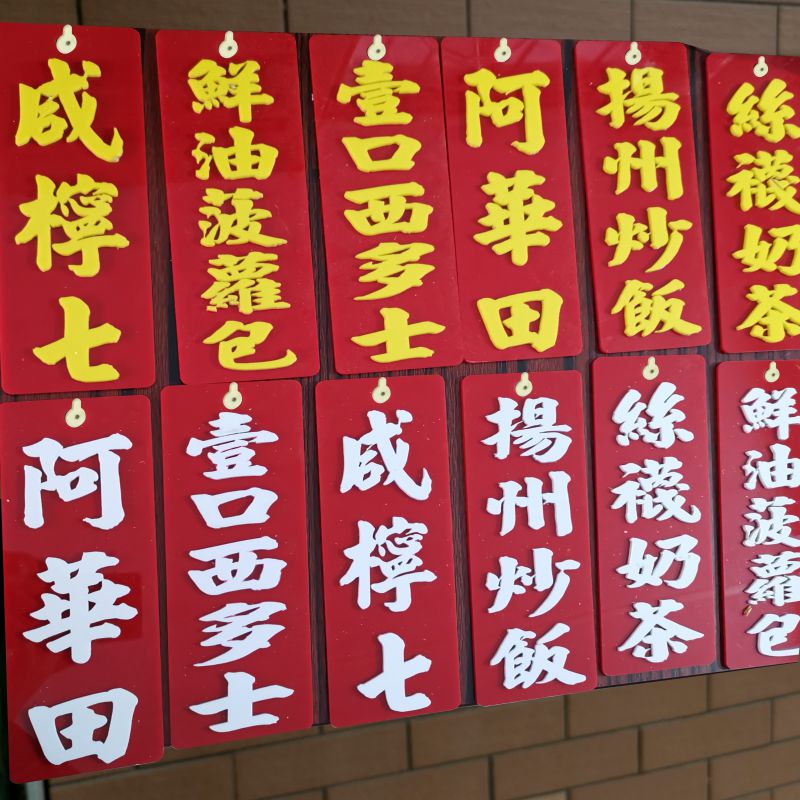 咸檸七
鮮油菠蘿包
壹口西多士
阿華田
揚州炒飯
絲襪奶茶
阿華田
壹口西多士
咸檸七
揚州炒飯
絲襪奶茶
鮮油菠蘿包